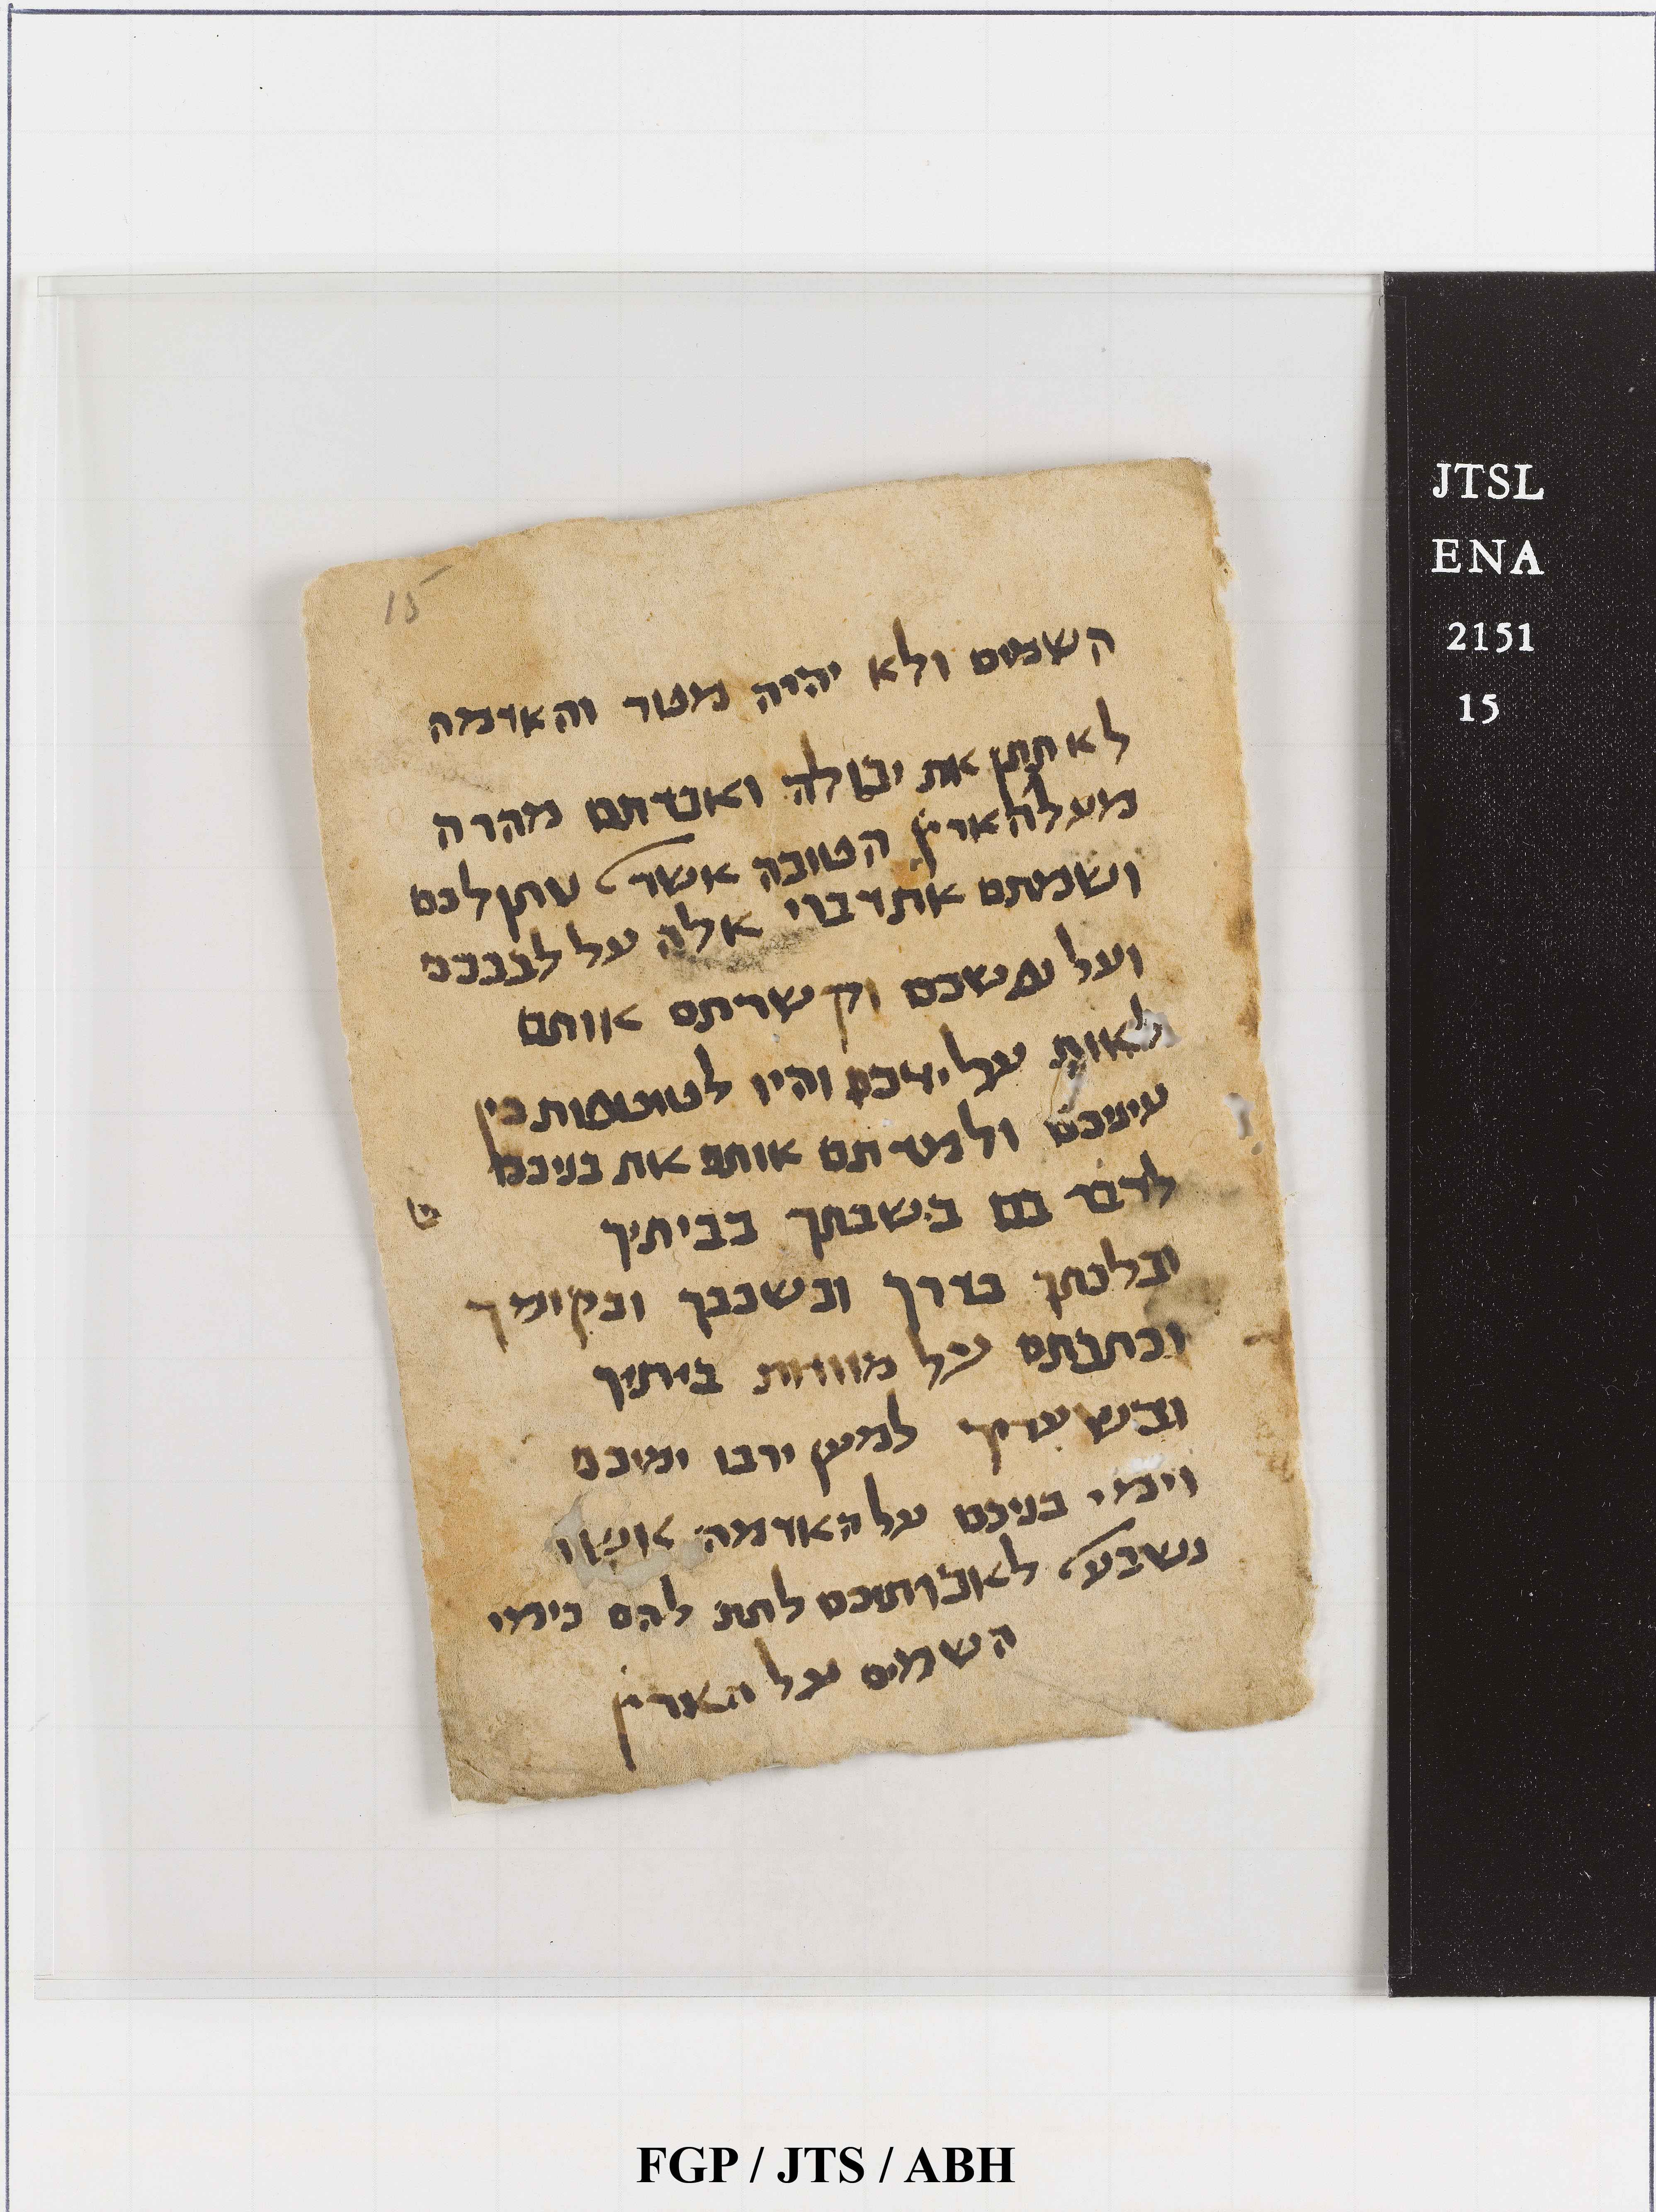 15
השמים ולא יהיה מטר והאדמה
לא תתן את יבולה ואבדתם מהרה
מעל הארץ הטובה אשר נתן לכם
ושמתם את דברי אלה על לבבכם
ועל נפשכם וקשרתם אותם
לאות על ידכם והיו לטוטפות בין
עיניכם ולמדתם אותם את בניכם
לדבר בם בשבתך בביתיך
ובלכתך בדרך ובשכבך ובקומך
וכתבתם על מזוזות ביתיך
ובשעריך למען ירבו ימיכם
וימי בניכם על האדמה אשר
נשבע לאבותיכם לתת להם כימי
השמים על הארץ
JTSL
ENA
2151
15
FGP / JTS / ABH